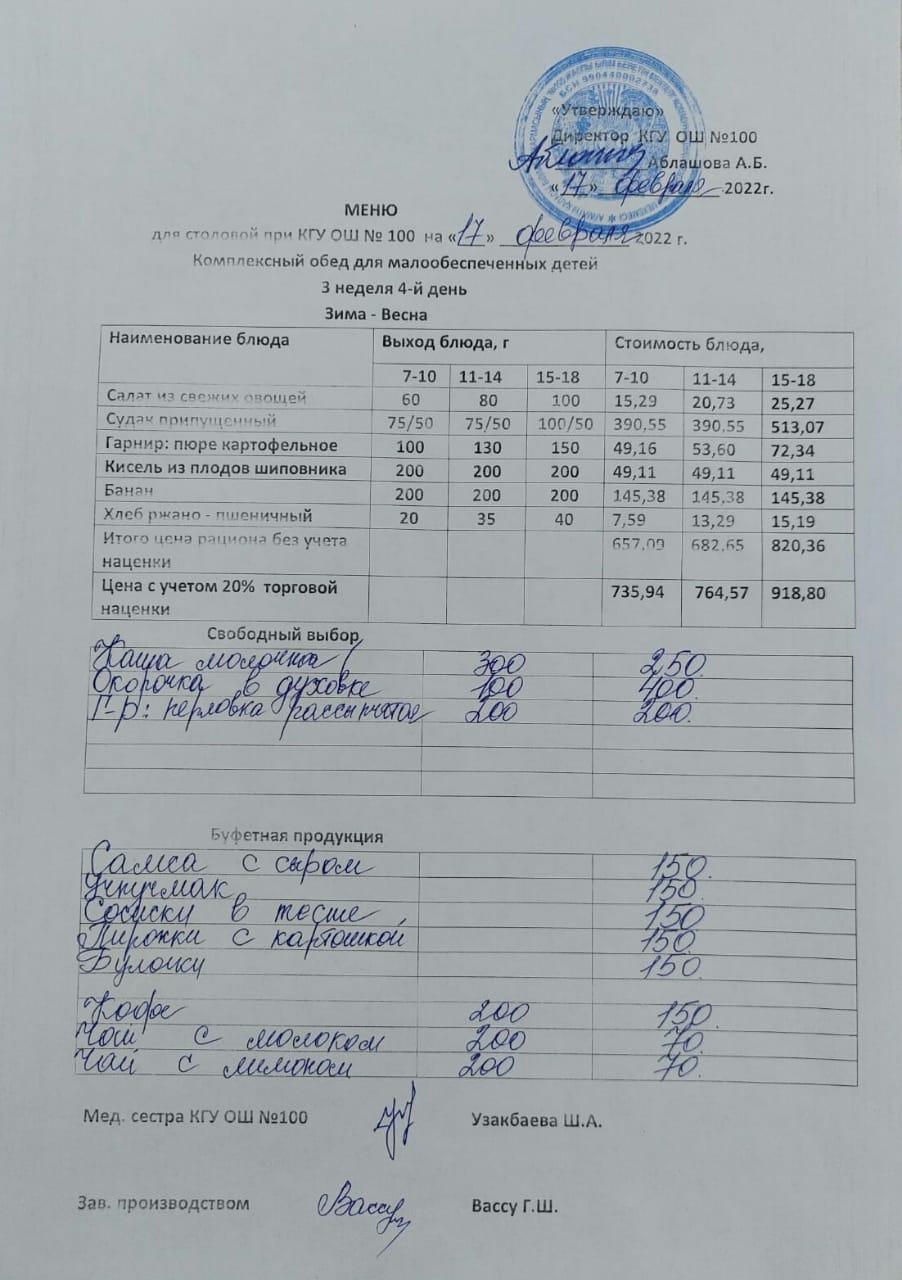 БСН 990440002738
«Утверждаю»
Директор КГУ ОШ №100
Аблашова А.Б.
«17» февраля 2022г.
МЕНЮ
для столовой при КГУ ОШ № 100 на «17» февраля 2022 г.
Комплексный обед для малообеспеченных детей
3 неделя 4-й день
Зима - Весна
Наименование блюда Выход блюда, г Стоимость блюда,
7-10 11-14 15-18 7-10 11-14 15-18
Салат из свежих овощей 60 80 100 15,29 20,73 25,27
Судак припущенный 75/50 75/50 100/50 390,55 390,55 513,07
Гарнир: пюре картофельное 100 130 150 49,16 53,60 72,34
Кисель из плодов шиповника 200 200 200 49,11 49,11 49,11
Банан 200 200 200 145,38 145,38 145,38
Хлеб ржано - пшеничный 20 35 40 7,59 13,29 15,19
Итого цена рациона без учета 657,09 682,65 820,36
наценки
Цена с учетом 20% торговой 735,94 764,57 918,80
наценки
Свободный выбор
Каша молочная 300 250.
Окорочка в духовке 100 400.
Г-р: перловка рассыпчатая 200 200.
Буфетная продукция
Самса с сыром 150.
Учпучмак 150.
Сосиски в тесте 150
Пирожки с картошкой 150.
Булочки 150.
Кофе 200 150.
Чай с молоком 200 70.
Чай с лимоном 200 70.
Мед. сестра КГУ ОШ №100 Узакбаева Ш.А.
Зав. производством Вассу Вассу Г.Ш.